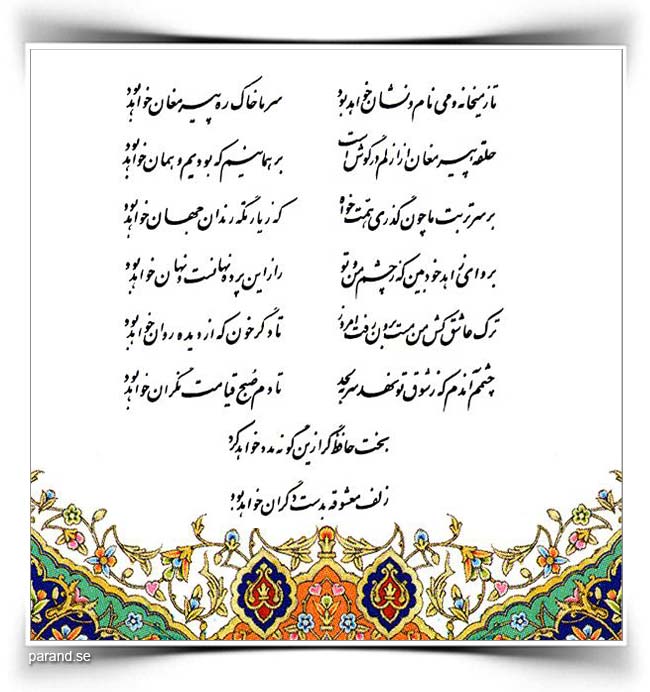 تا ز میخانه و می نام و نشان خواهد بود سر ما خاک ره پیر مغان خواهد بود
حلقه پیر مغان از ازلم در گوش است بر همانیم که بودیم و همان خواهد بود
بر سر تربت ما چون گذری همت خواه که زیارتگه رندان جهان خواهد بود
برو ای زاهد خودبین که ز چشم من و تو راز این پرده نهانست و نهان خواهد بود
ترک عاشق کش من مست برون رفت امروز تا دگر خون که از دیده روان خواهد بود
چشمم آندم که ز شوق تو نهد سر به لحد تا دم صبح قیامت نگران خواهد بود
بخت حافظ گر ازین گونه مدد خواهد کرد
زلف معشوقه بدست دگران خواهد بود
parand.se